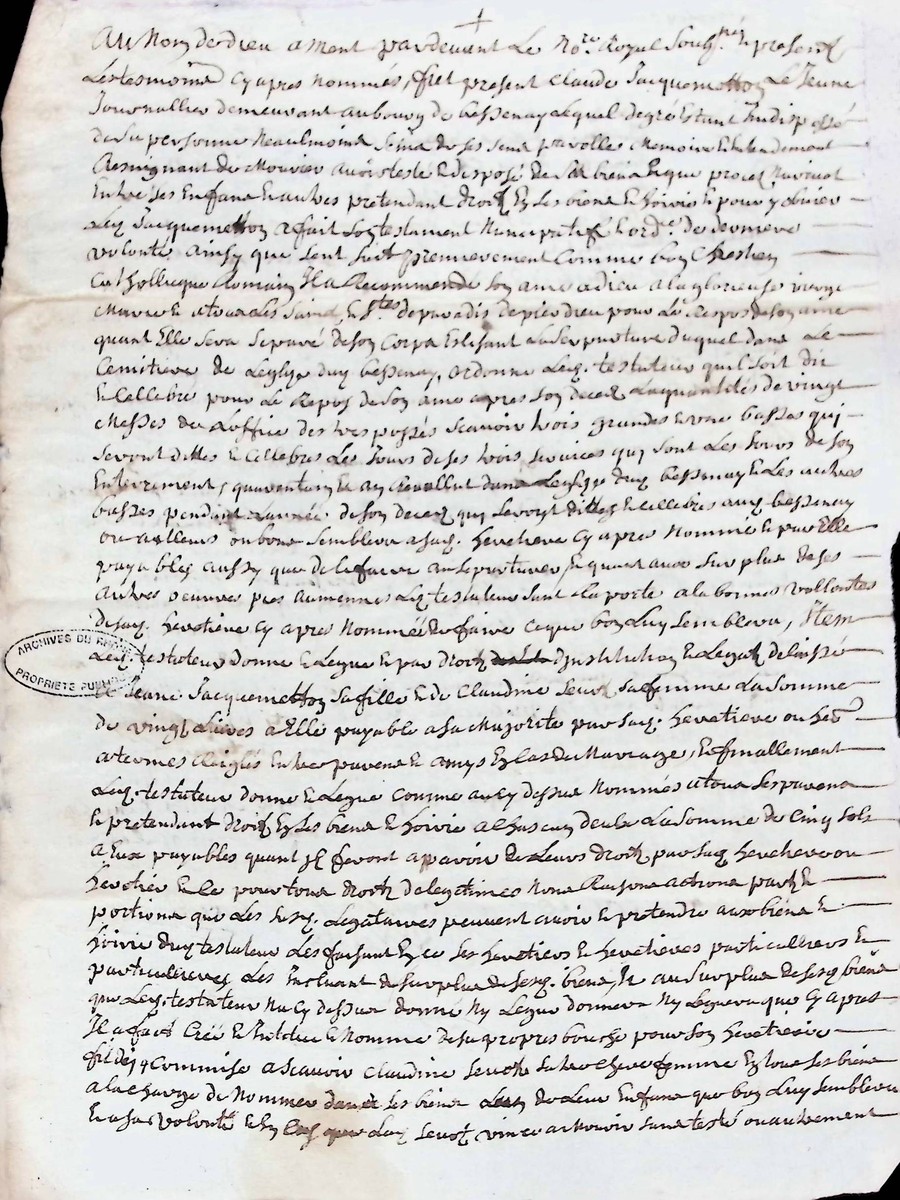 Au Nom de dieu amen pardevant Le No.re Royal Soubs.né presents
Les tesmoins Cy apres Nommés, fut present Claude Jacquemetton Le Jeune
Journallier demeurant au bourg de bessenay Lequel de gré Estant Indisposé
de sa personne Neaulmoins sein de ses sens parolles Memoire & Entendement
Creignant de Mourir avoir testé & disposé de ses biens & que procez Nayvint
Entre ses Enfans & autres pretendant droitz En ses biens & hoirie & pour y obvier
Led. Jacquemetton a fait son testament Nuncupatif & ord.ce de derniere
volonté ainsy que sent suit premierement Comme bon Chrestien
Catholicque Romain Il a Recommendé son ame a dieu a la glorieuse vierge
Marie & a tous Les Saints & S.tes de paradis de prier dieu pour Le Repos de son ame
quant Elle sera Separé de son Corps Eslisant La Sepulture duquel dans Le
Cemitiere de Leglize dud bessenay, ordonne Led. testateur quil soit dit
& Cellebré pour Le Repos de son ame apres son decez La quantité de vingt
Messes de Loffice des trespassés Scavoir trois grandes & une basses qui
Seront dittes & Cellebrés Les Jours de ses trois services qui sont Les Jours de son
Enterrement, quarantain & an Revollut dans Leglize dud bessenay & Les autres
basses pendant Lannée de son decez qui seront dittes & cellebrés aud bessenay
ou ailleurs ou bons semblera a sad. heretiere Cy apres Nommé & par Elle
payables aussy que de le faire ausepulturer & quant aux Surplus de ses
autres oeuvres pies aumosnes Led. testateur sant Raporte a la bonnes vollontes
de sad. heretiere Cy apres Nommée de faire Ceque bon Luy semblera, Item
Led. testateur donne & Legue & par droitz dInstitution & Legat delaissé
a Jeane Jacquemetton sa fille & de Claudine sa femme La Somme
de vingt Livres a Elle payable a sa Majorite par sad. heretiere ou her.
a termes Reiglés Entre parens & amys En Cas de Mariage, & finallement
Led. testateur donne & Legue comme au Cy dessus Nommés a tous ses parens
& pretendant droitz En ses biens & hoirie a Chascun deulx La Somme de Cinq sols
a Eux payables quant Il feront aparoir de Leurs droitz par sad. heretiere ou
heretier & Ce pour tous droitz de legitimes Noms Raisons actions partz &
portions que Les susd. Legataires peuvent avoir & pretendre aux biens &
hoirie dud testateur Les faisant En Ce ses heretiers & heretieres particulliers &
particullieres Les Excluant du Surplus de sesd. biens, & au Surplus de sesd biens
que Led. testateur Na Cy dessus donné Ny Legué donnera Ny Leguera que Cy apres
Il a fait Créé & Institué & Nommé de sa propres bouche pour son heretiere
fideiq Commise a scavoir Claudine sa tres Chere femme En tous ses biens
a la Charge de Nommer ses biens de Leur Enfans que bon Luy semblera
& a sa volonté & En Cas que Lad. vince a Mourir sans testé ou autrement
ARCHIVES DU RHÔNE
PROPRIETE PUBLIQUE